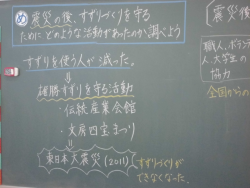 め 震災の後、すずりづくりを守る
ためにどのような活動があったのか調べよう
すずりを使う人が減った。
雄勝すずりを守る活動
・伝統産業会館
・文房四宝まつり
東日本大震災(2011)
すずりづくりが
できなくなった。
震災後
職人、ボラン
人、大学生の
協力
全国からの